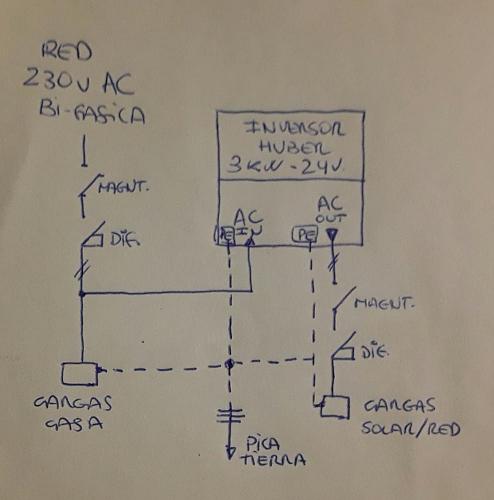 RED
230V AC
BI-FASICA
MAGNT.
DIF.
INVERSOR
HUBER
3KW-24V.
PE
AC
IN
PE
AC
OUT
MAGNT.
DIF.
CARGAS
CASA
CARGAS
SOLAR/RED
PICA
TIERRA